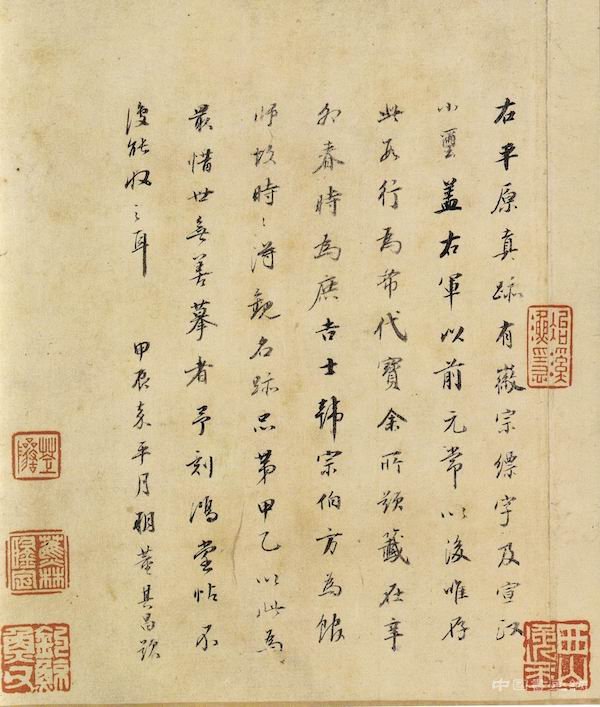 右平原真跡有徽宗縹字及宣政
小璽盖右軍以前元常以後唯存
此數行為希代寶余所題籤在辛
卯春時為庶吉士韓宗伯方為館
師故時〻得觀名跡品第甲乙以此為
最惜世無善摹者予刻鴻堂帖不
復能收之耳 甲辰嘉平月朔董其昌題
冶溪漁隱